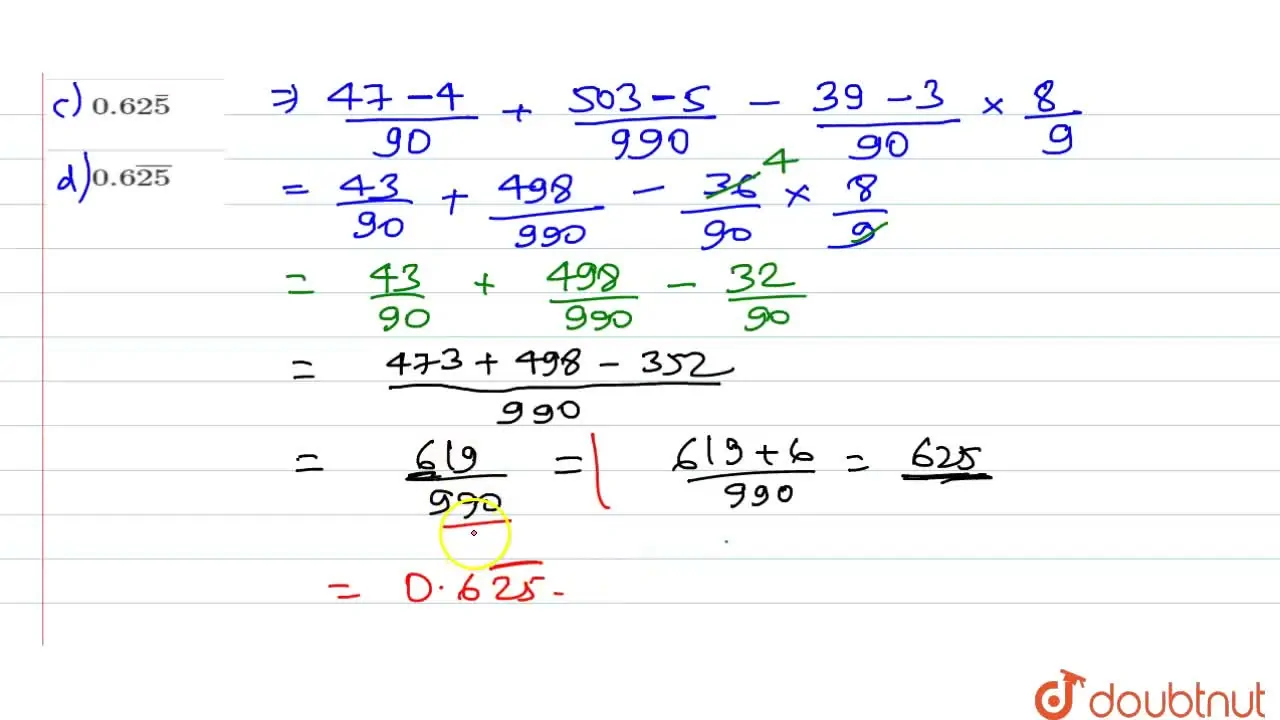 c) 0.625̅ ⇒ 47-4/90 + 503-5/990 - 39-3/90 × 8/9
d) 0.62̅5̅ = 43/90 + 498/990 - 36/90 × 8/9 4
= 43/90 + 498/990 - 32/90
= 473+498-352/990
= 619/990 = | 619+6/990 = 625
= 0.62̅5̅-
doubtnut